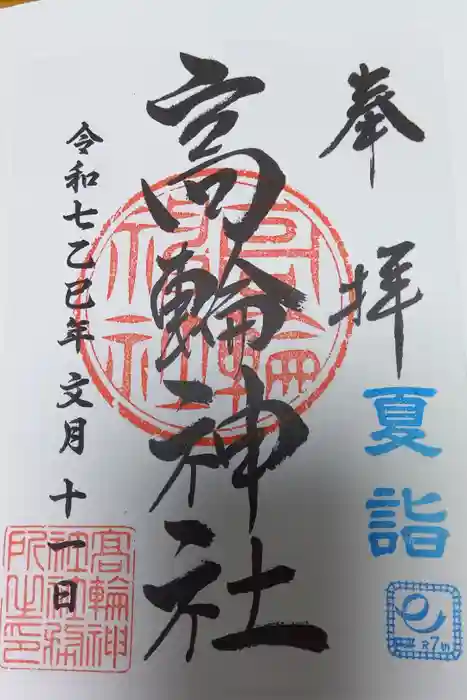 奉拝
夏詣
R7th
高輪神社
高輪神社
令和七乙巳年 文月 十一日
高輪神
社社務
所之印